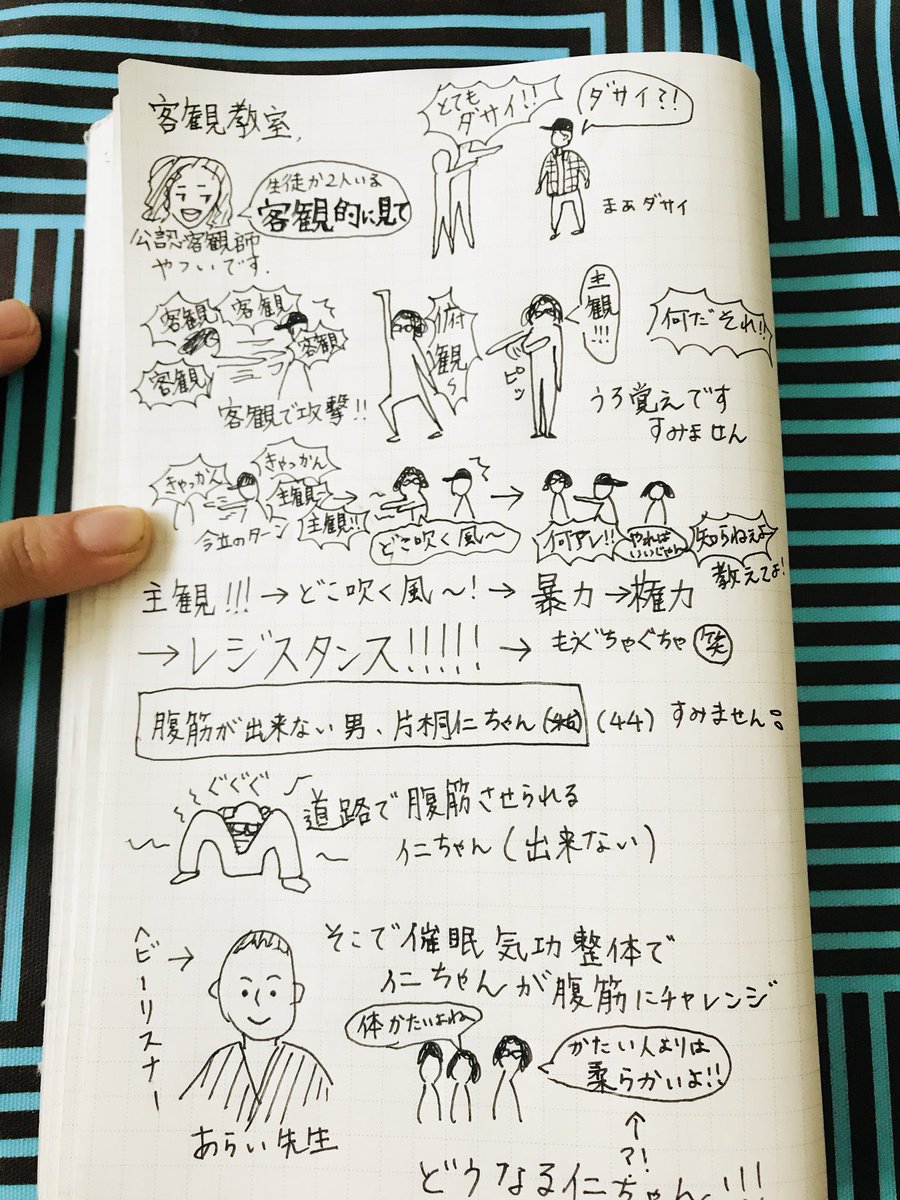 客観教室、
とてもダサイ!!
ダサイ?!
生徒が2人いる
客観的に見て
まぁダサイ
公認客観師
やついです.
客観
客観
客観
客観
客観で攻撃!!
俯観〜
主観!!!
ピッ
何だそれ!!
うろ覚えです
すみません
きゃっかん
きゃっかん
主観
主観!!
今立のターン
どこ吹く風〜
何アレ!!
やればいいじゃん
知らねぇよ
教えてよ!
主観!!!→どこ吹く風〜!→暴力→権力
→レジスタンス!!!!!→もうぐちゃぐちゃ(笑)
腹筋が出来ない男、片桐仁ちゃん (44) すみません
ぐぐぐ
道路で腹筋させられる
仁ちゃん(出来ない)
ヘビーリスナー
→
そこで催眠気功整体で
仁ちゃんが腹筋にチャレンジ
体かたいよね
かたい人よりは
柔らかいよ!!
↑
?!
あらい先生
どうなる仁ちゃん!!!